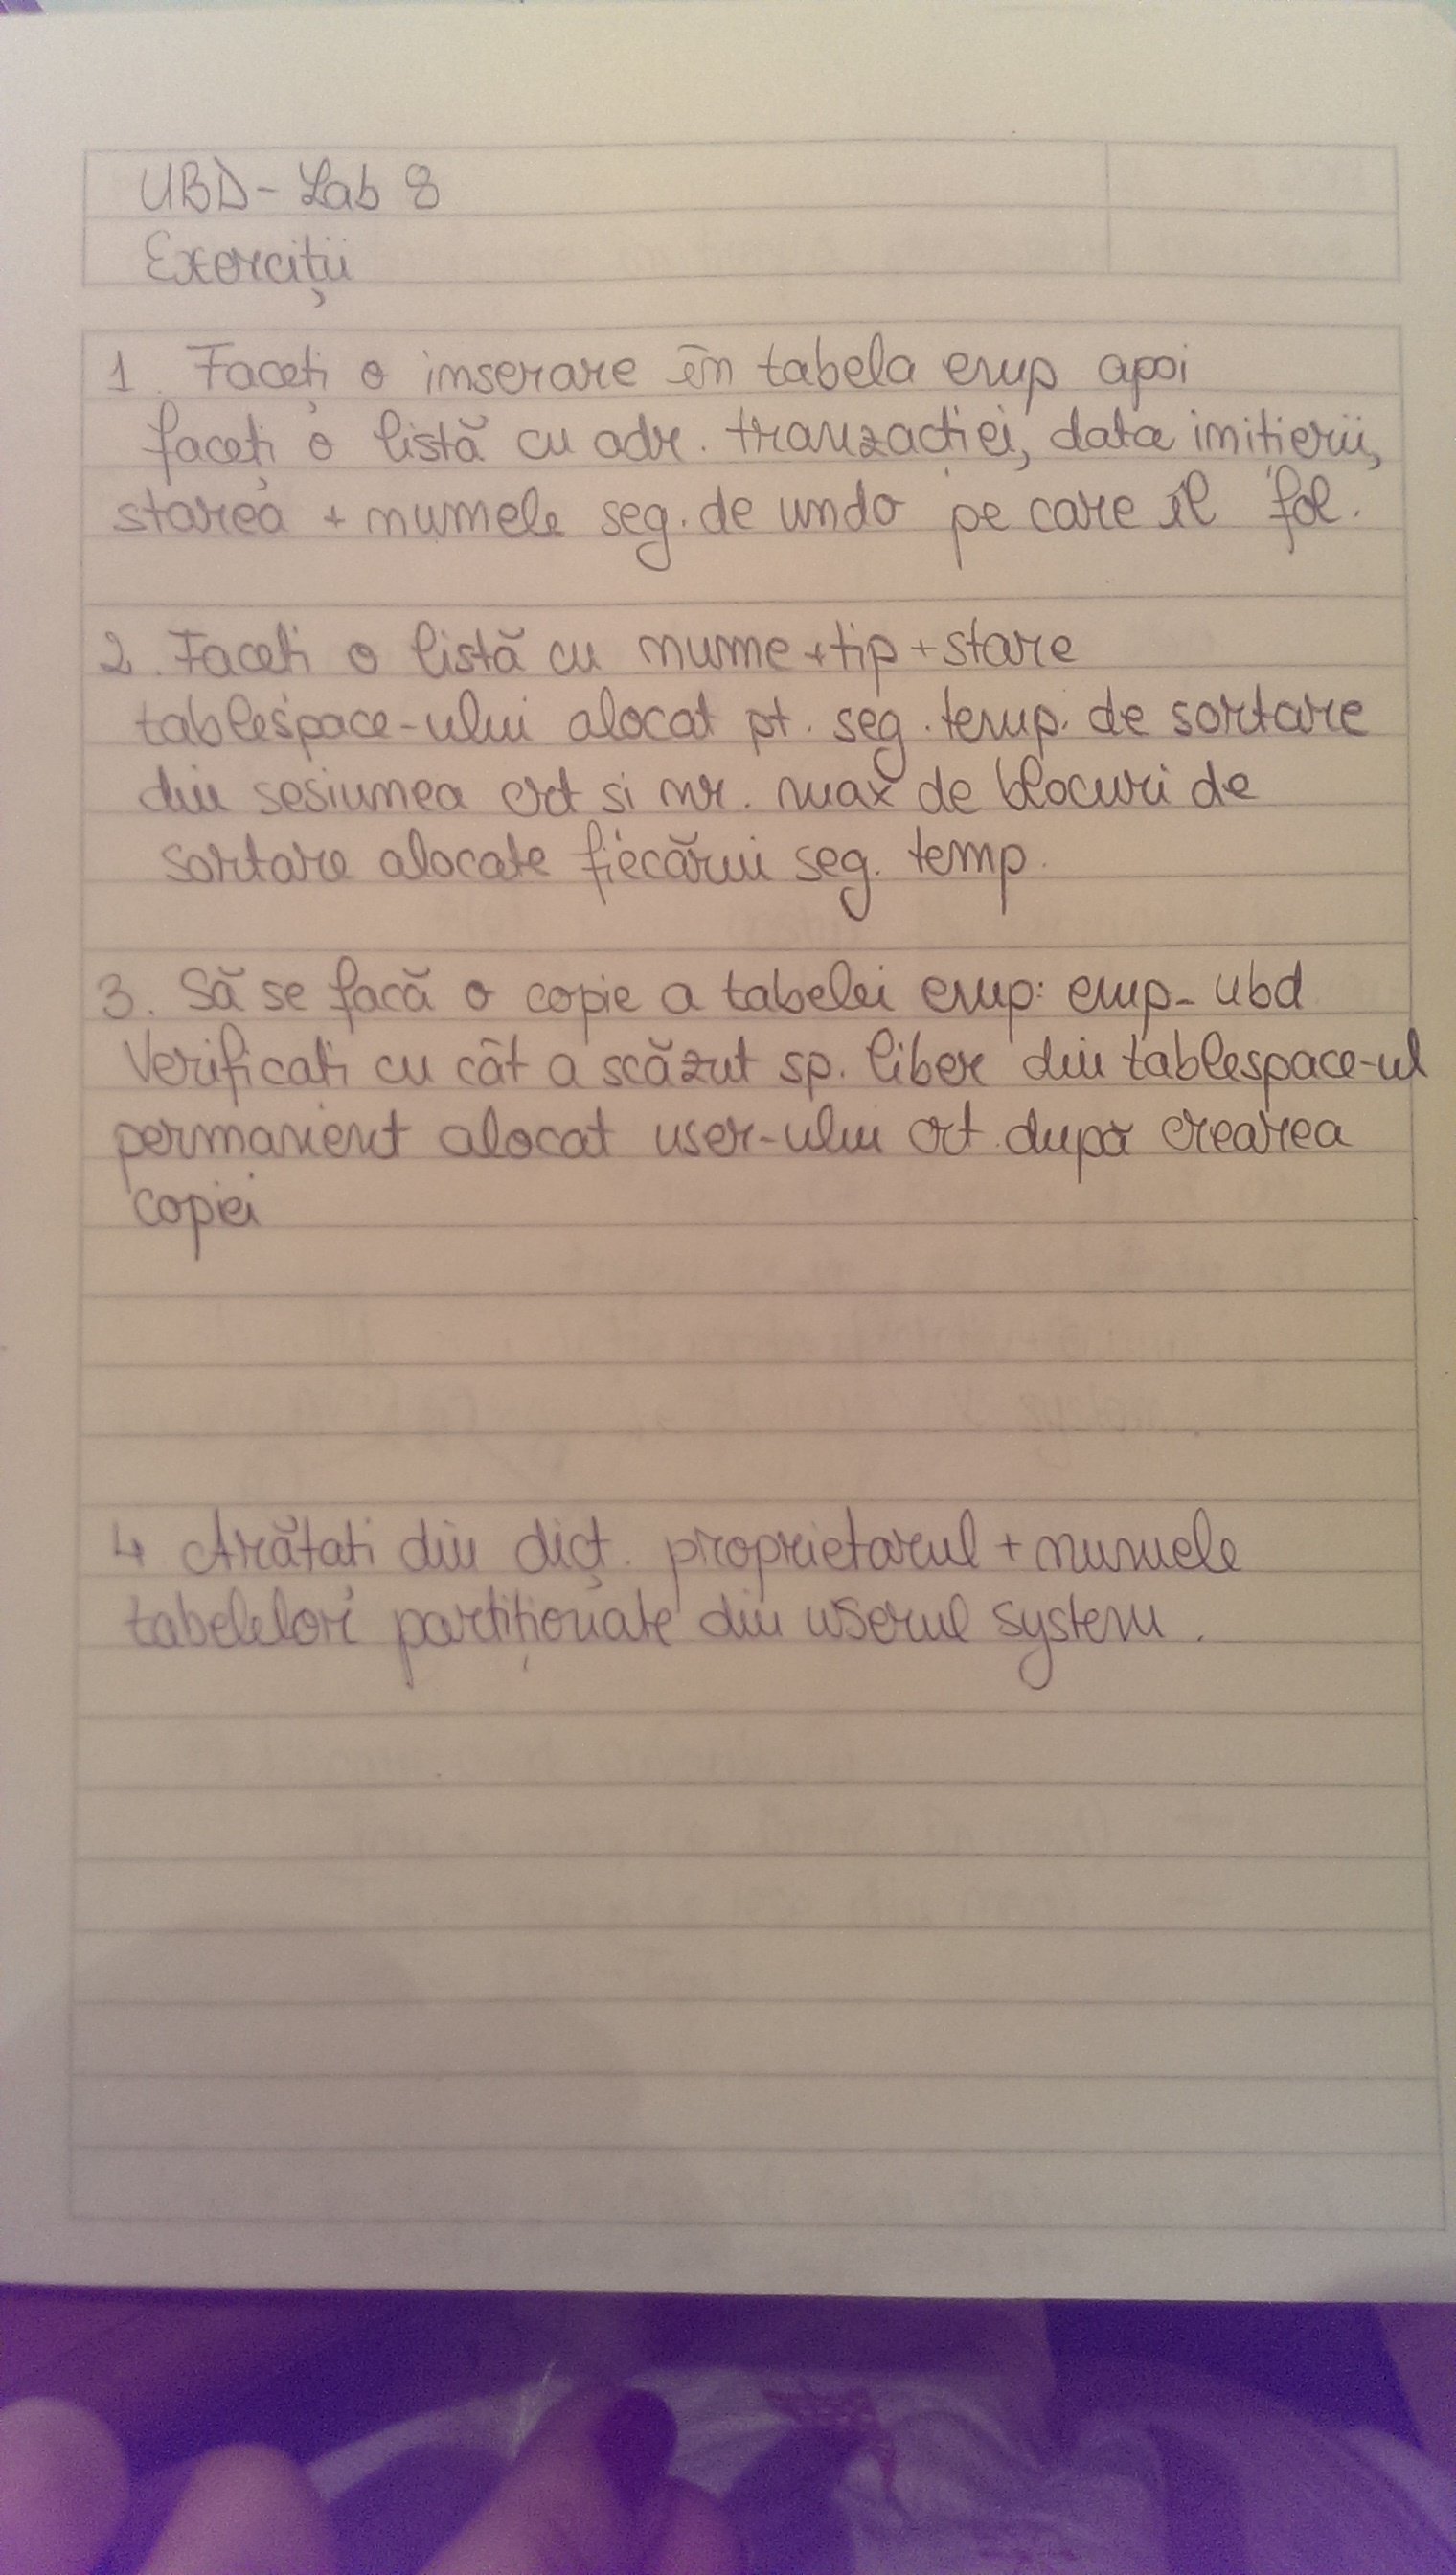 UBD - Lab 8
Exerciții
1. Faceți o inserare în tabela emp apoi
faceți o listă cu adr. tranzacției, data inițierii,
starea + numele seg. de undo pe care îl fol.
2. Faceti o listă cu nume + tip + stare
tablespace-ului alocat pt. seg. temp. de sortare
din sesiunea crt si nr. max de blocuri de
sortare alocate fiecărui seg. temp.
3. Să se facă o copie a tabelei emp: emp_ubd
Verificati cu cât a scăzut sp. liber din tablespace-ul
permanent alocat user-ului crt. după crearea
copiei
4. Arătati din dicț. proprietarul + numele
tabelelor partiționate din userul system.